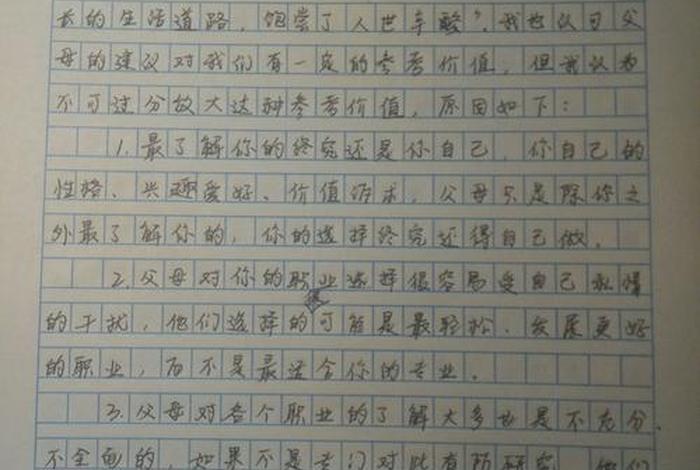 长的生活道路，饱尝了人世辛酸"，我也认可父
母的建议对我们有一定的参考价值，但我认为
不可过分放大这种参考价值，原因如下：
1.最了解你的终究还是你自己，你自己的
性格、兴趣爱好、价值诉求，父母只是除你之
外最了解你的，你的选择终究还得自己做。
2.父母对你的职业选择很容易受自己私情
的干扰，他们选择的可能是最轻松、发展更好
的职业，而不是最适合你的专业。
3.父母对各个职业的了解大多也是不充分、
不全面的，如果不是专门对此有所研究，他们